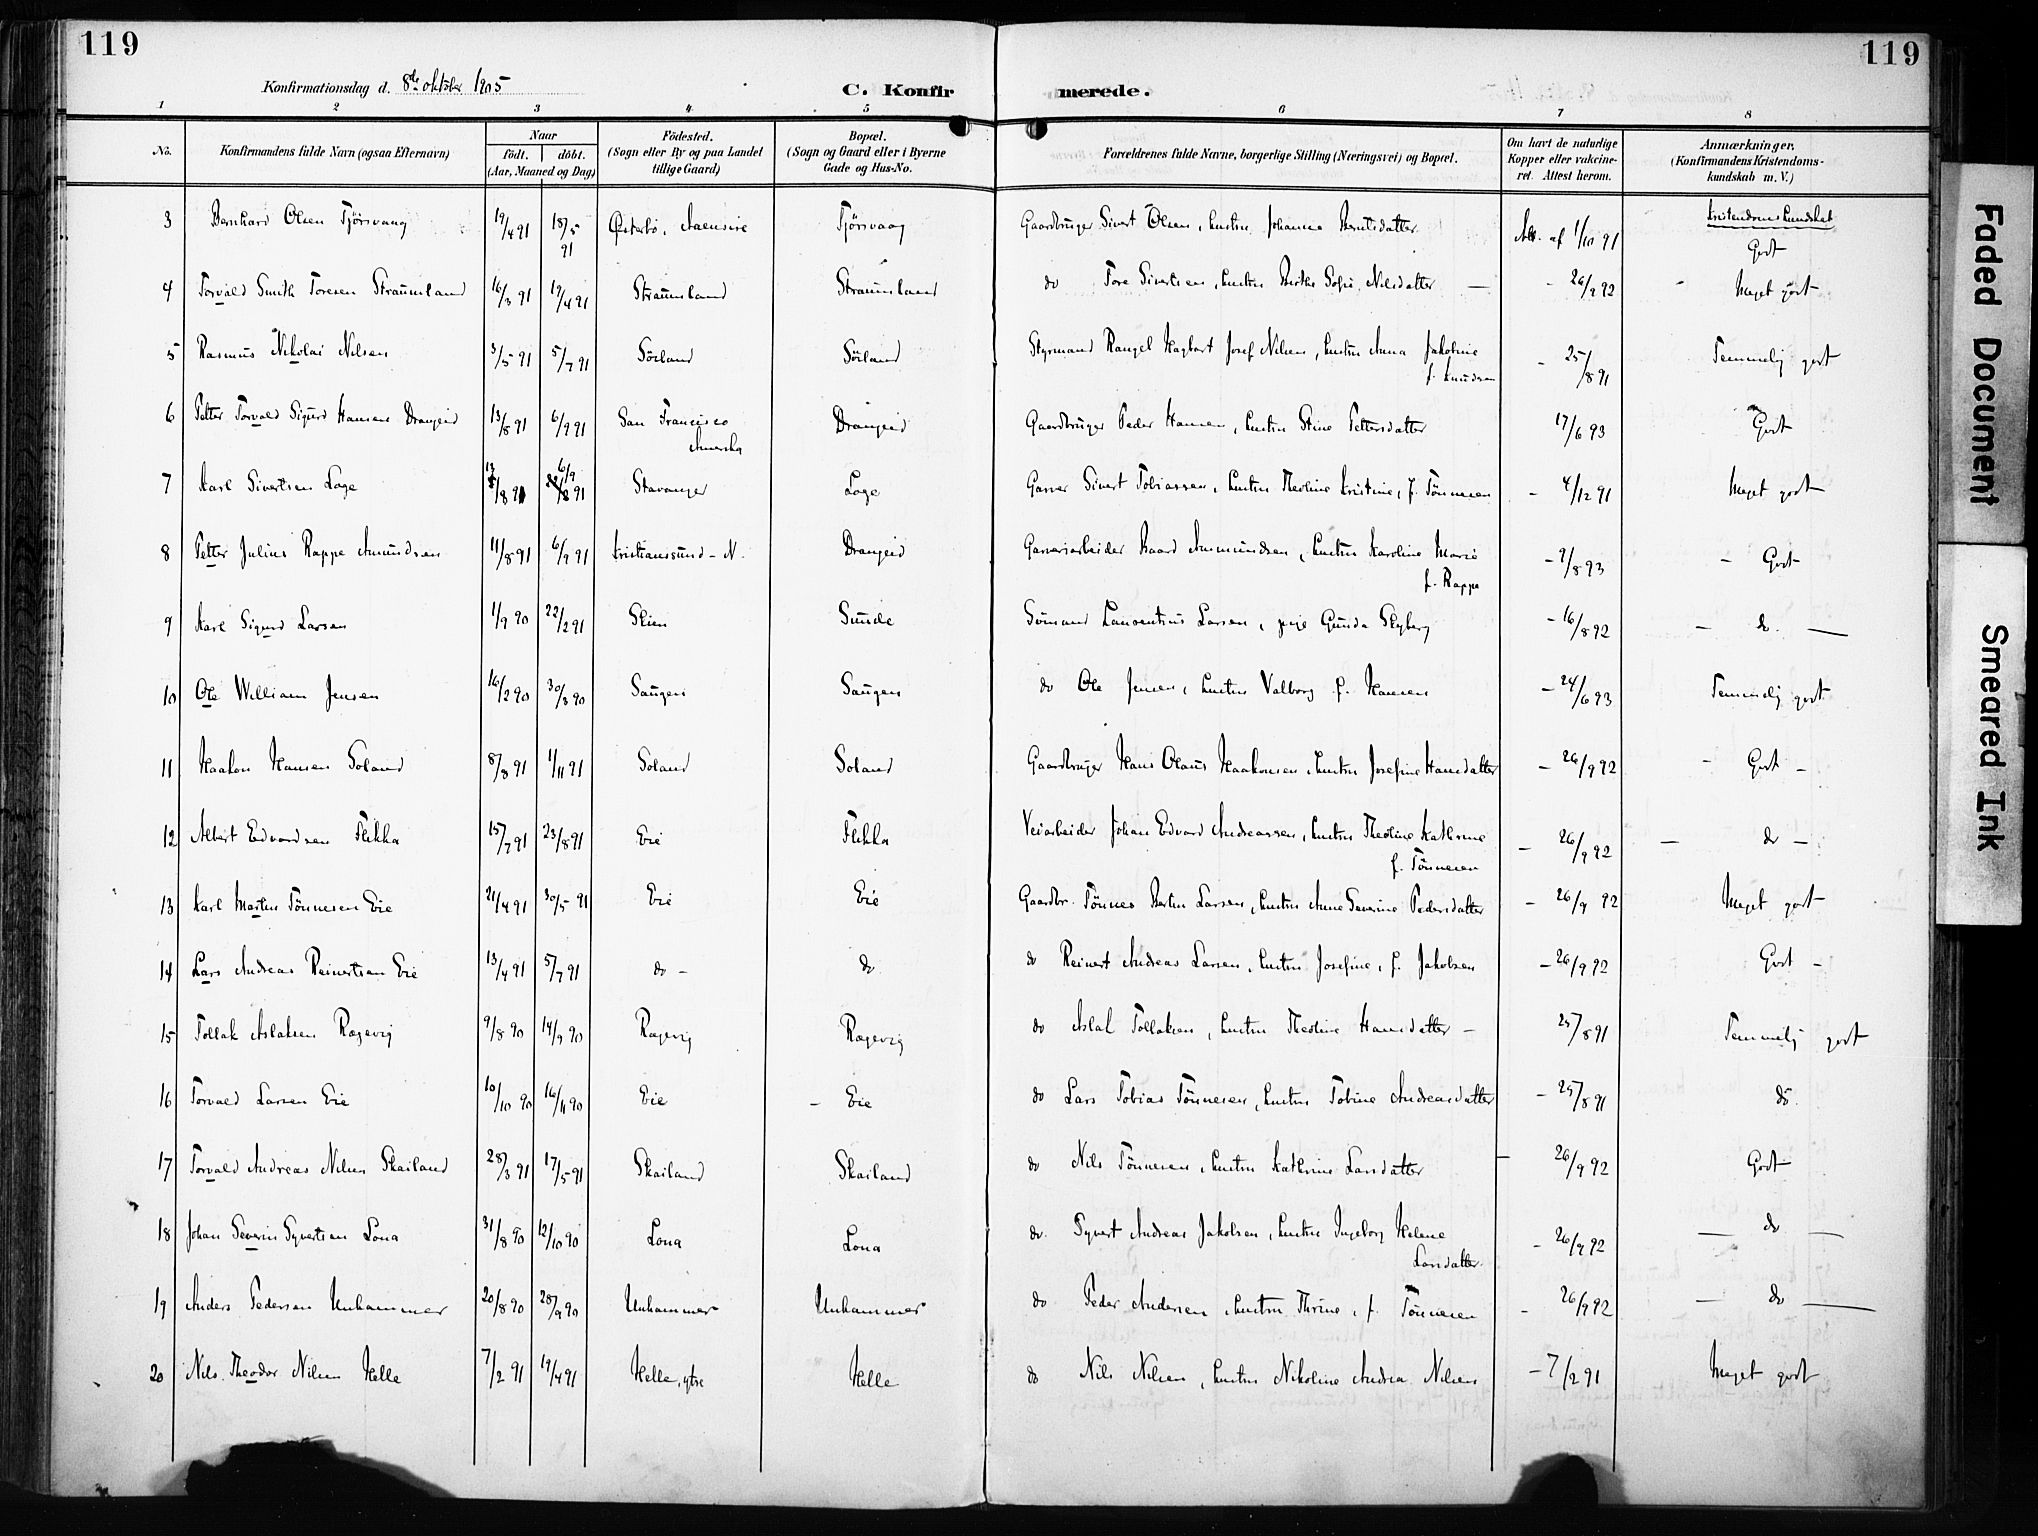 119
119
Konfirmationsdag d. 8de oktober 1905
C. Konfir
merede.
1 2 3 4 5 6 7 8
No.
Konfirmandens fulde Navn (ogsaa Efternavn)
Naar
født. døbt.
(Aar, Maaned og Dag)
Fødested.
(Sogn eller By og paa Landet
tillige Gaard)
Bopæl.
(Sogn og Gaard eller i Byerne
Gade og Hus-No.
Forældrenes fulde Navne, borgerlige Stilling (Næringsvei) og Bopæl.
Om havt de naturlige
Kopper eller vakcine-
ret. Attest herom.
Anmærkninger.
(Konfirmandens Kristendoms-
kundskab m. V.)
Kristendomskundskab
3 Bernhard Olsen Tjörsvaag 19/4 91 18/5 91 Tjörsvaag Gaardbruger Sivert Olsen, hustru Johanne Berntsdatter Att. af 1/10 91 Godt
4 Torvald Smith Toresen Straumland 16/3 91 19/4 91 Straumland Straumland do Tore Sivertsen, hustru Sofie Nilsdatter – - 26/9 92 Meget godt
5 Rasmus Nikolai Nilsen 3/5 91 5/7 91 Sörland Sörland Styrmand Rangel Hagbart Josef Nilsen, hustru Anna Jakobine
f. Knudsen - 25/8 91 Temmelig godt
6 Petter Torvald Sigurd Hansen Drangeid 13/8 91 6/9 91 San Francisco
Amerika Drangeid Gaardbruger Peder Hansen, hustru Stine Pettersdatter 17/6 93 Godt
7 Karl Sivertsen Loge /8 91 6/9 91 Stavanger Loge Garver Sivert Tobiassen, hustru Theoline Kristine, f. Tönnesen - 4/12 91 Meget godt
8 Petter Julius Rappe Amundsen 11/8 91 6/9 91 Kristianssund - N. Drangeid Garveriarbeider Baard Ammundsen, hustru Karoline Marie
f. Rappe - 9/8 93 - Godt
9 Karl Sigurd Larsen 1/9 90 22/2 91 Skien Sunde Sömand Laurentius Larsen, pige Gunda Skyberg - 16/8 92 – do. –
10 Ole William Jensen 16/2 90 30/3 90 Saugen Saugen do Ole Jensen, hustru Valborg f. Hansen - 24/6 93 Temmelig godt
11 Haakon Hansen Soland 8/3 91 1/11 91 Soland Soland Gaardbruger Hans Olaus Haakonsen, hustru Josefine Hansdatter - 26/9 92 - Godt -
12 Albert Edvardsen Flikka 15/7 91 23/8 91 Eie Flikka Veiarbeider Johan Edvard Andreassen, hustru Theoline Kathrine
f. Tönnesen - 26/9 92 - do -
13 Karl Martin Tönnesen Eie 21/4 91 30/5 91 Eie Eie Gaardbr. Tönnes Bertin Larsen, hustru Anne Severine Pedersdatter - 26/9 92 Meget godt
14 Lars Andreas Reinertsen Eie 13/4 91 5/7 91 do - do do Reinert Andreas Larsen, hustru Josefine, f. Jakobsen - 26/9 92 Godt -
15 Tollak Aslaksen Rægevig 9/8 90 14/9 90 Rægevig Rægevig do Aslak Tollaksen, hustru Theoline Hansdatter - 25/8 91 Temmelig godt
16 Torvald Larsen Eie 10/10 90 16/11 90 Eie - Eie do Lars Tobias Tönnesen, hustru Tobine Andreasdatter - 25/8 91 do.
17 Torvald Andreas Nilsen Skailand 28/3 91 17/5 91 Skailand Skailand do Nils Tönnesen, hustru Kathrine Larsdatter - 26/9 92 Godt
18 Johan Severin Syvertsen Lona 31/8 90 12/10 90 Lona Lona do. Syvert Andreas Jakobsen, hustru Ingeborg Helene
Larsdatter. - 26/9 92 – do –
19 Anders Pedersen Unhammer 20/8 90 28/9 90 Unhammer Unhammer do Peder Andersen, hustru Thrine, f. Tönnesen - 26/9 92 – do –
20 Nils Theodor Nilsen Helle 7/2 91 19/4 91 Helle, ytre Helle do Nils Nilsen, hustru Nikoline Andrea Nilsen - 7/2 91 Meget godt
Faded Document
Smeared Ink